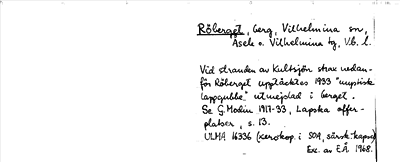 Röberget, berg, Vilhelmina sn,
Åsele o. Vilhelmina tg, Vb. l.
Vid stranden av Kultsjön strax nedan-
för Röberget upptäcktes 1933 "mystisk
lappgubbe" utmejslad i berget.
Se G. Modin 1917-33, Lapska offer-
platser, s. 13.
ULMA 16336 (xerokop. i SOA, särsk. kapsel)
Exc. av EÅ 1968.